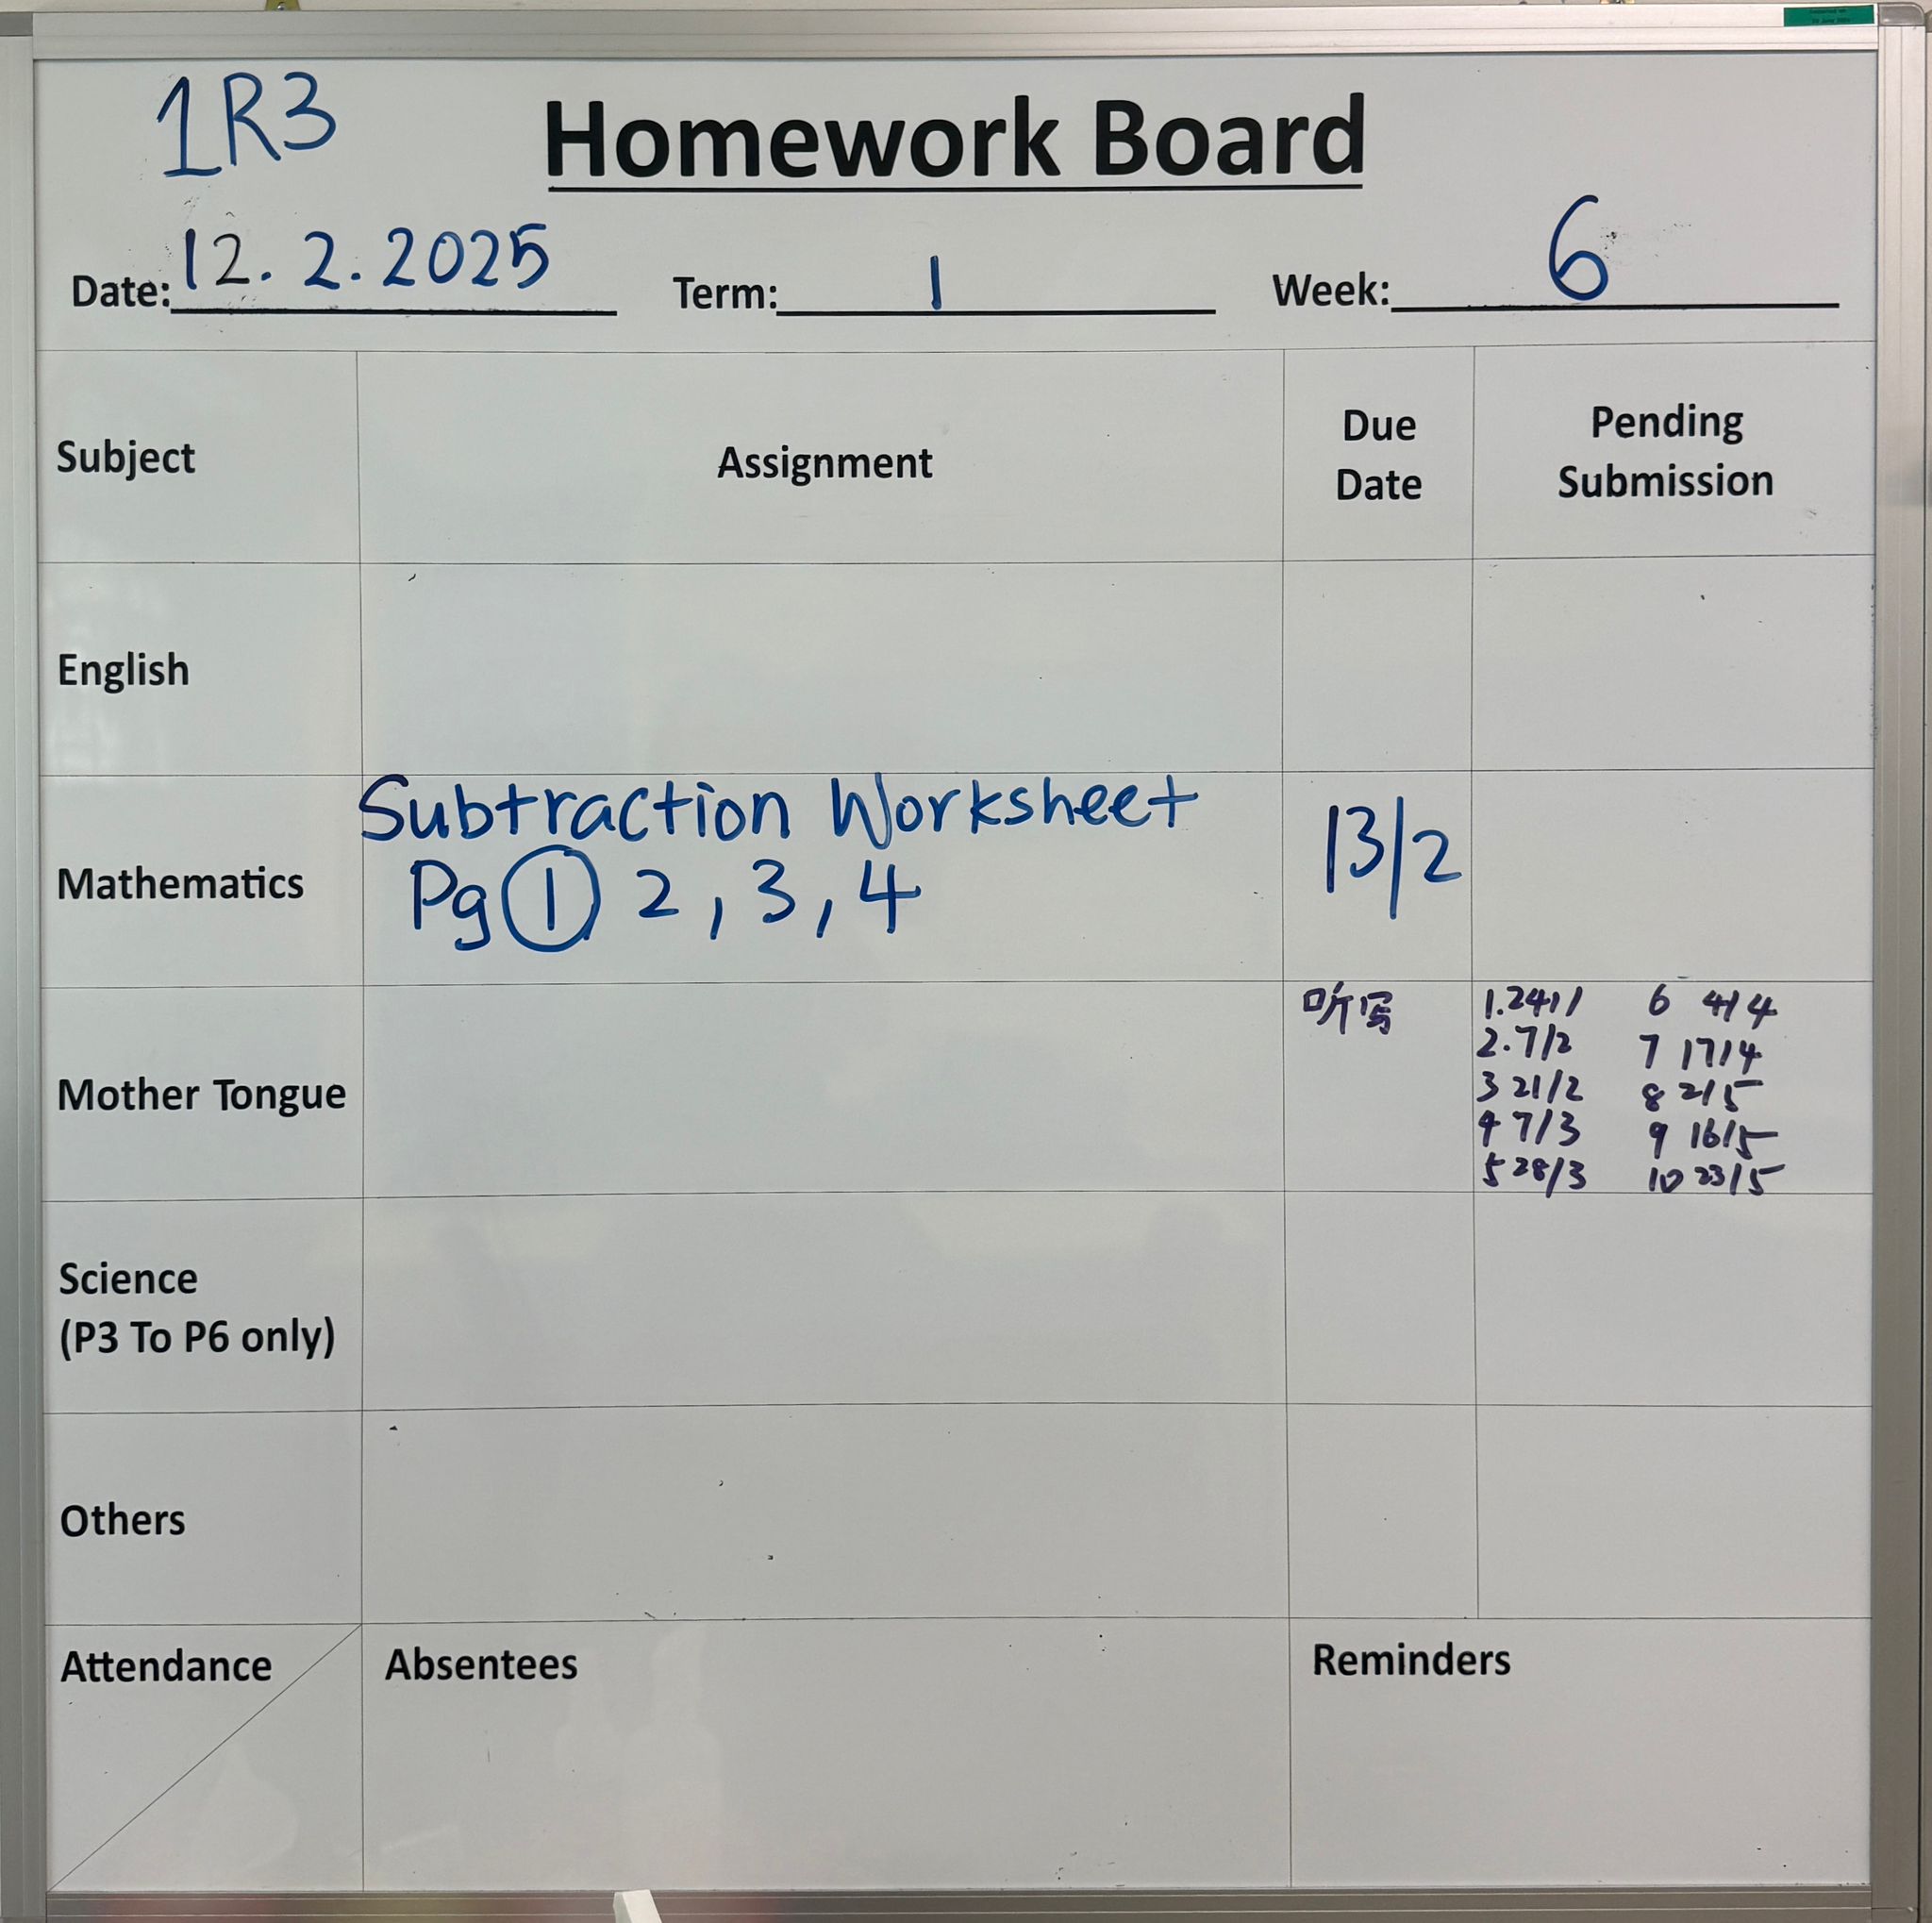 1R3
Homework Board
Date: 12.2.2025 Term: 1 Week: 6
Subject Assignment Due Date Pending Submission
English
Mathematics
Subtraction Worksheet
Pg ① 2, 3, 4
13/2
Mother Tongue
听写
1. 24/1 6 4/4
2. 7/2 7 17/4
3 21/2 8 2/5
4 7/3 9 16/5
5 28/3 10 23/5
Science
(P3 To P6 only)
Others
Attendance Absentees Reminders